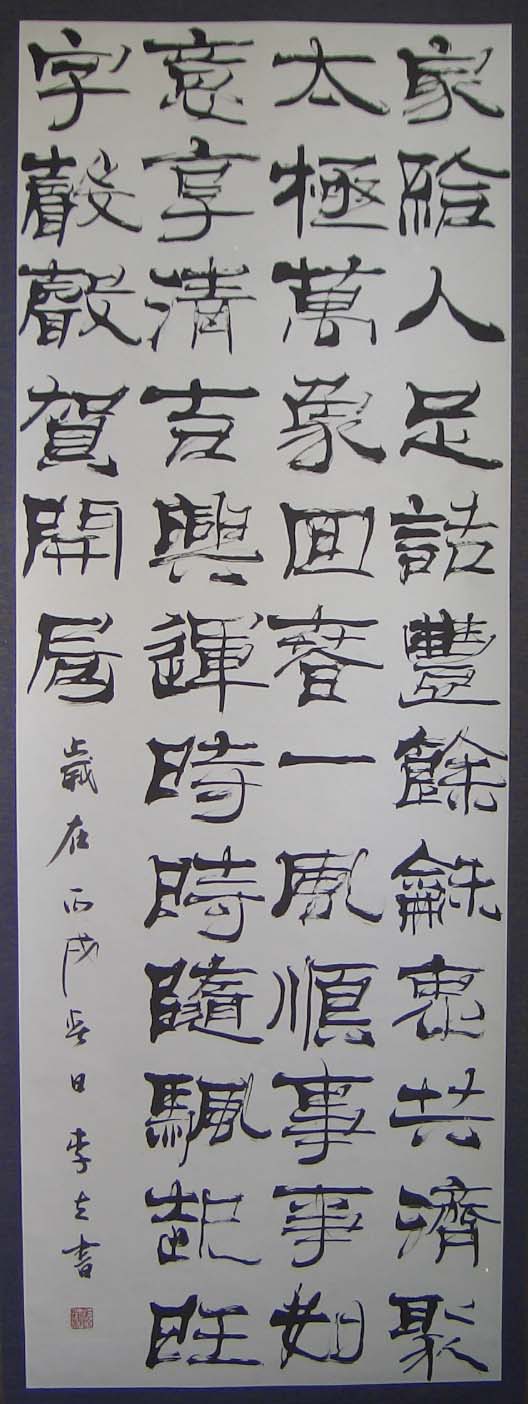 家給人足詰豐餘龢衷共濟聚
太極萬象回春一風順事事如
意享清吉興運時時隨颿起旺
字聲聲賀開
歲在丙戌日李立書